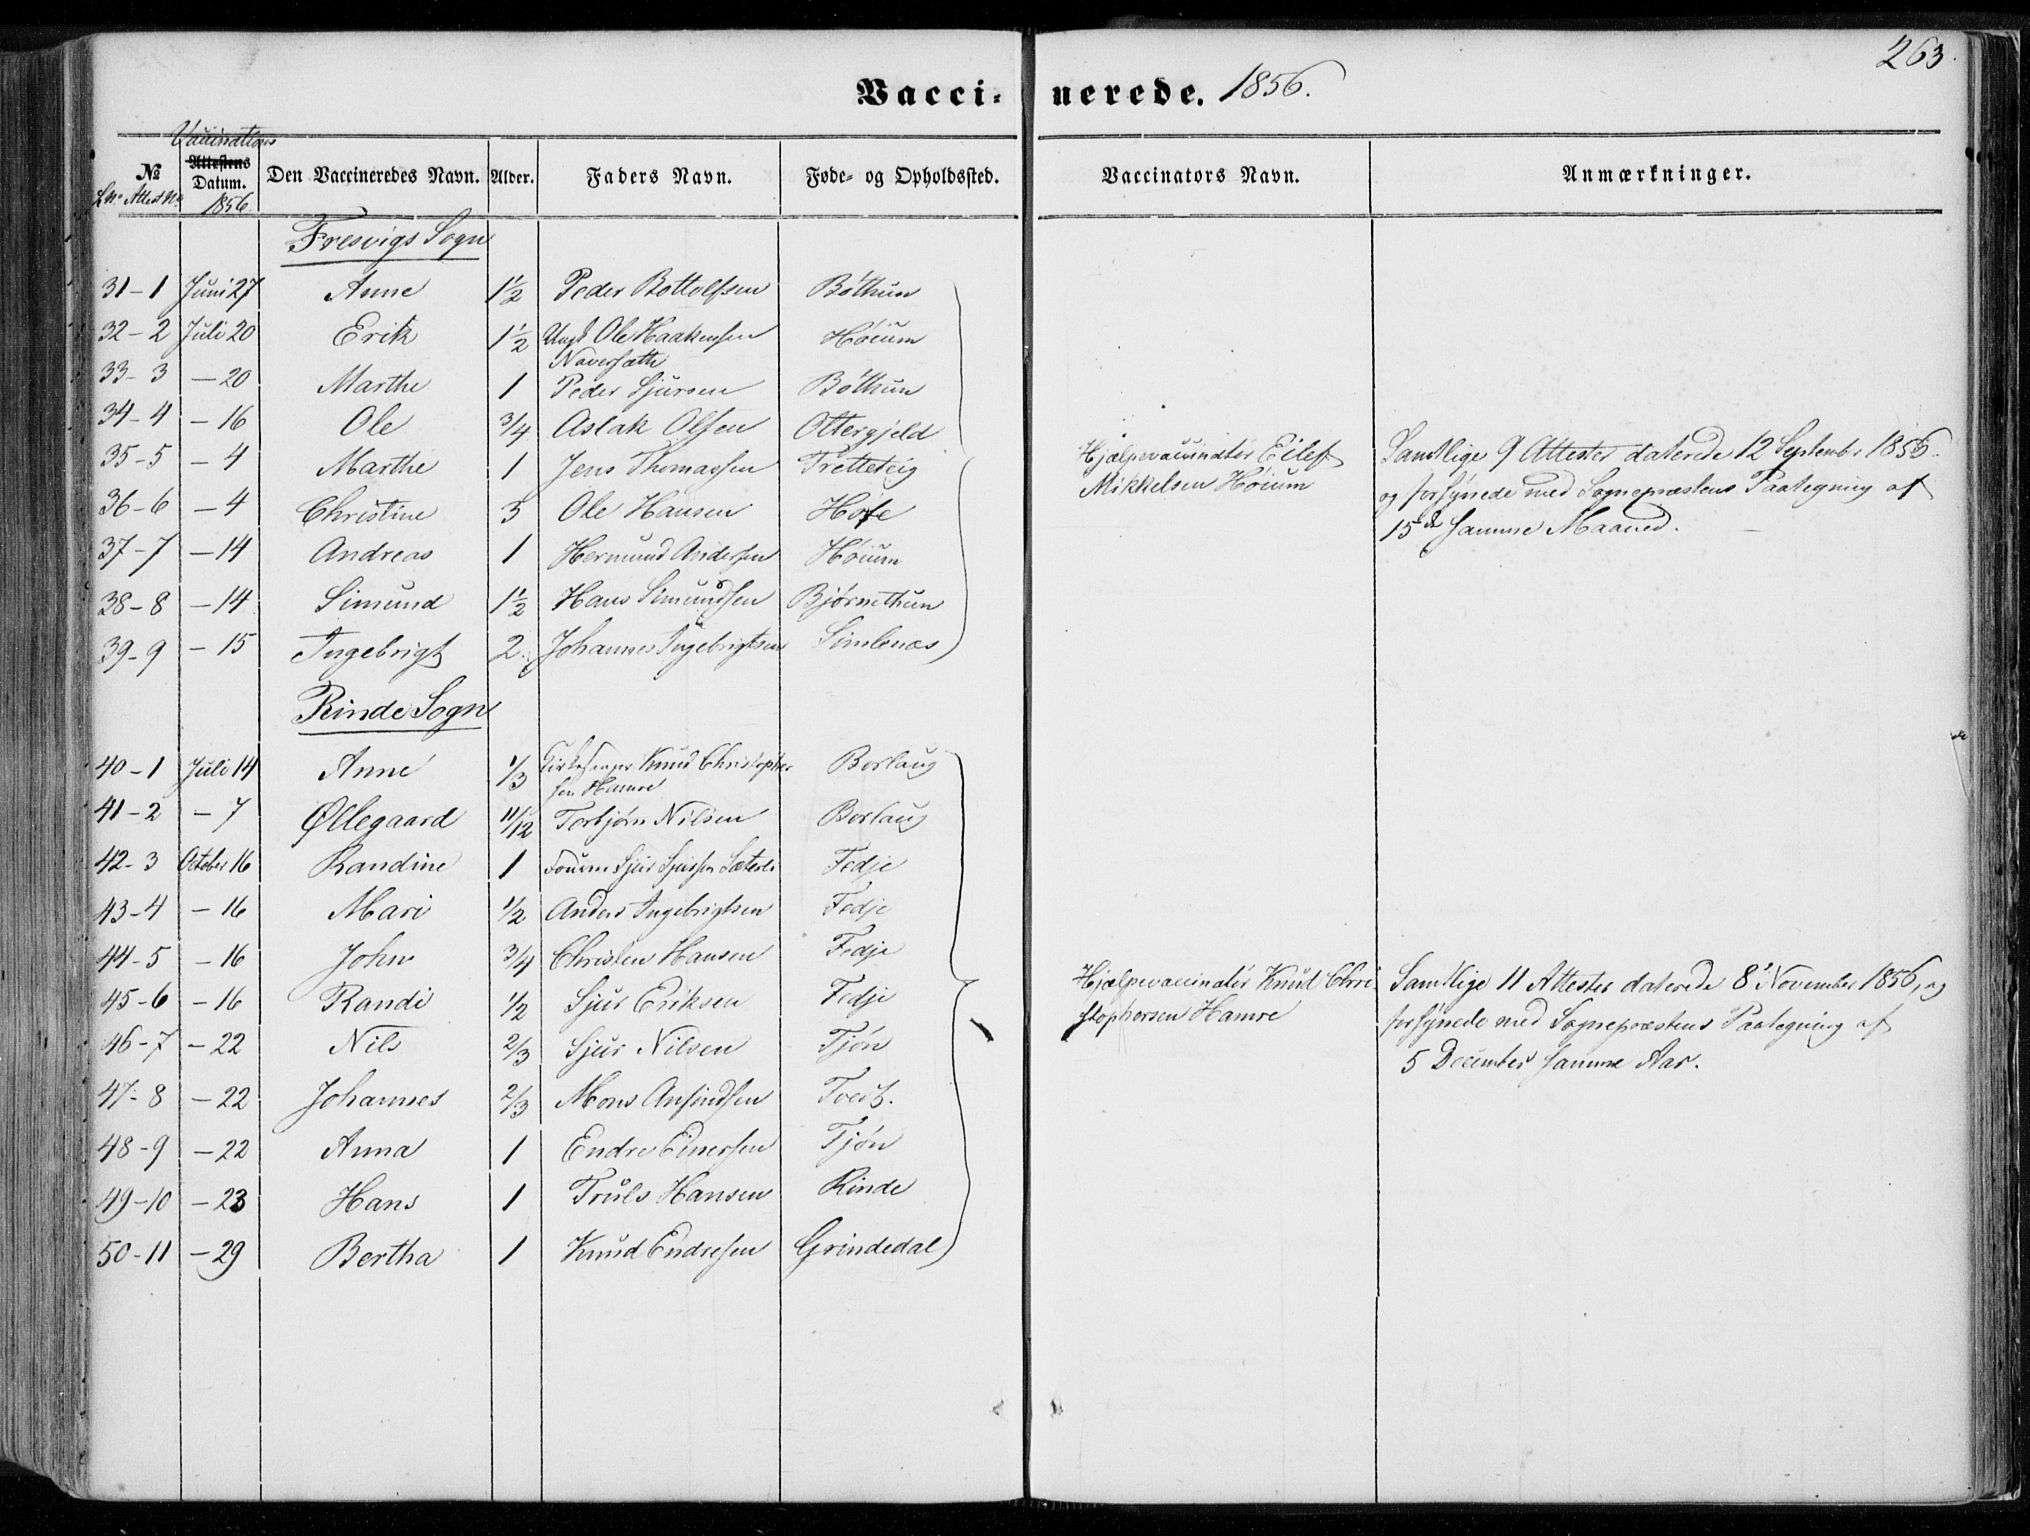 263.
Vacci- nerede. 1856.
Vaccinations
№ Attestens Datum. Den Vaccineredes Navn. Alder. Faders Navn. Føde- og Opholdssted. Vaccinators Navn. Anmærkninger.
L.No. Attest No. 1856
Fresvigs Sogn
31-1 Juni 27 Anne 1½ Peder Bottolfsen Bøthun
32-2 Juli 20 Erik 1½ Ungk Ole Haakensen Høium
Naversæthe
33-3 - 20 Marthe 1 Peder Sjursen Bøthun
34-4 - 16 Ole 3/4 Aslak Olsen Ottergjeld
35-5 - 4 Marthe 1 Jens Thomassen Tretteteig Hjælpevaccinatør Eilef Samtlige 9 Attester daterede 12 Septembr 1856.
36-6 - 4 Christine 3 Ole Hansen Høfe Mikkelsen Høium og forsynede med Sognepræstens Paategning af
37-7 - 14 Andreas 1 Hermund Andersen Høium 15de samme Maaned.
38-8 - 14 Simund 1½ Hans Simundsen Bjørnethun
39-9 - 15 Ingebrigt 2 Johannes Ingebrigtsen Simlenæs
Rinde Sogn
40-1 Juli 14 Anne 1/3 Kirkesanger Knud Christopher Borlaug
sen Hamre
41-2 - 7 Øllegaard 11/12 Torbjørn Nilsen Borlaug
42-3 October 16 Randine 1 Sjur Sjursen Fedje
43-4 - 16 Mari 1/2 Anders Ingebrigtsen Fedje
44-5 - 16 John 3/4 Christen Hansen Fedje
45-6 - 16 Randi 1/2 Sjur Eriksen Fedje Hjælpevaccinatør Knud Chri Samtlige 11 Attester daterede 8de November 1856, og
46-7 - 22 Nils 2/3 Sjur Nilsen Tjøn stophersen Hamre forsynede med Sognepræstens Paategning af
47-8 - 22 Johannes 2/3 Mons Ansindsen Tvedt. 5 December samme Aar.
48-9 - 22 Anna 1 Endre Einersen Tjøn
49-10 - 23 Hans 1 Truls Hansen Rinde
50-11 - 29 Bertha 1 Knud Endresen Grindedal